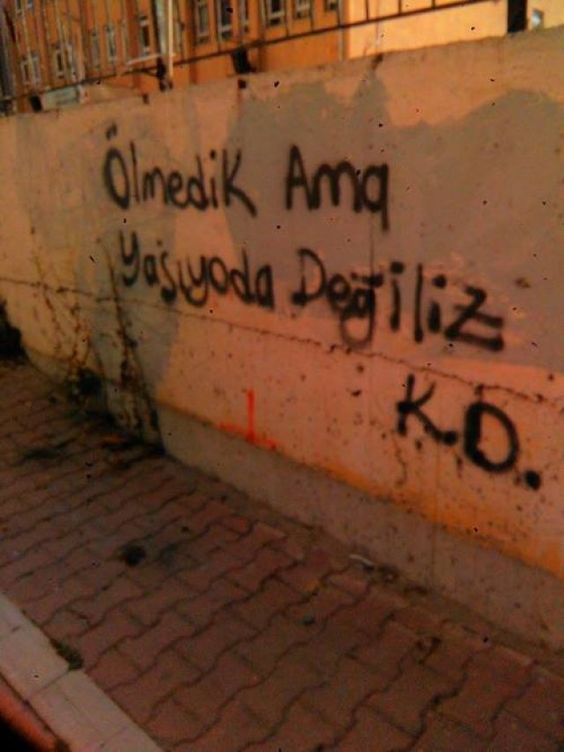 Ölmedik Ama
Yaşıyoda Değiliz
K.D.